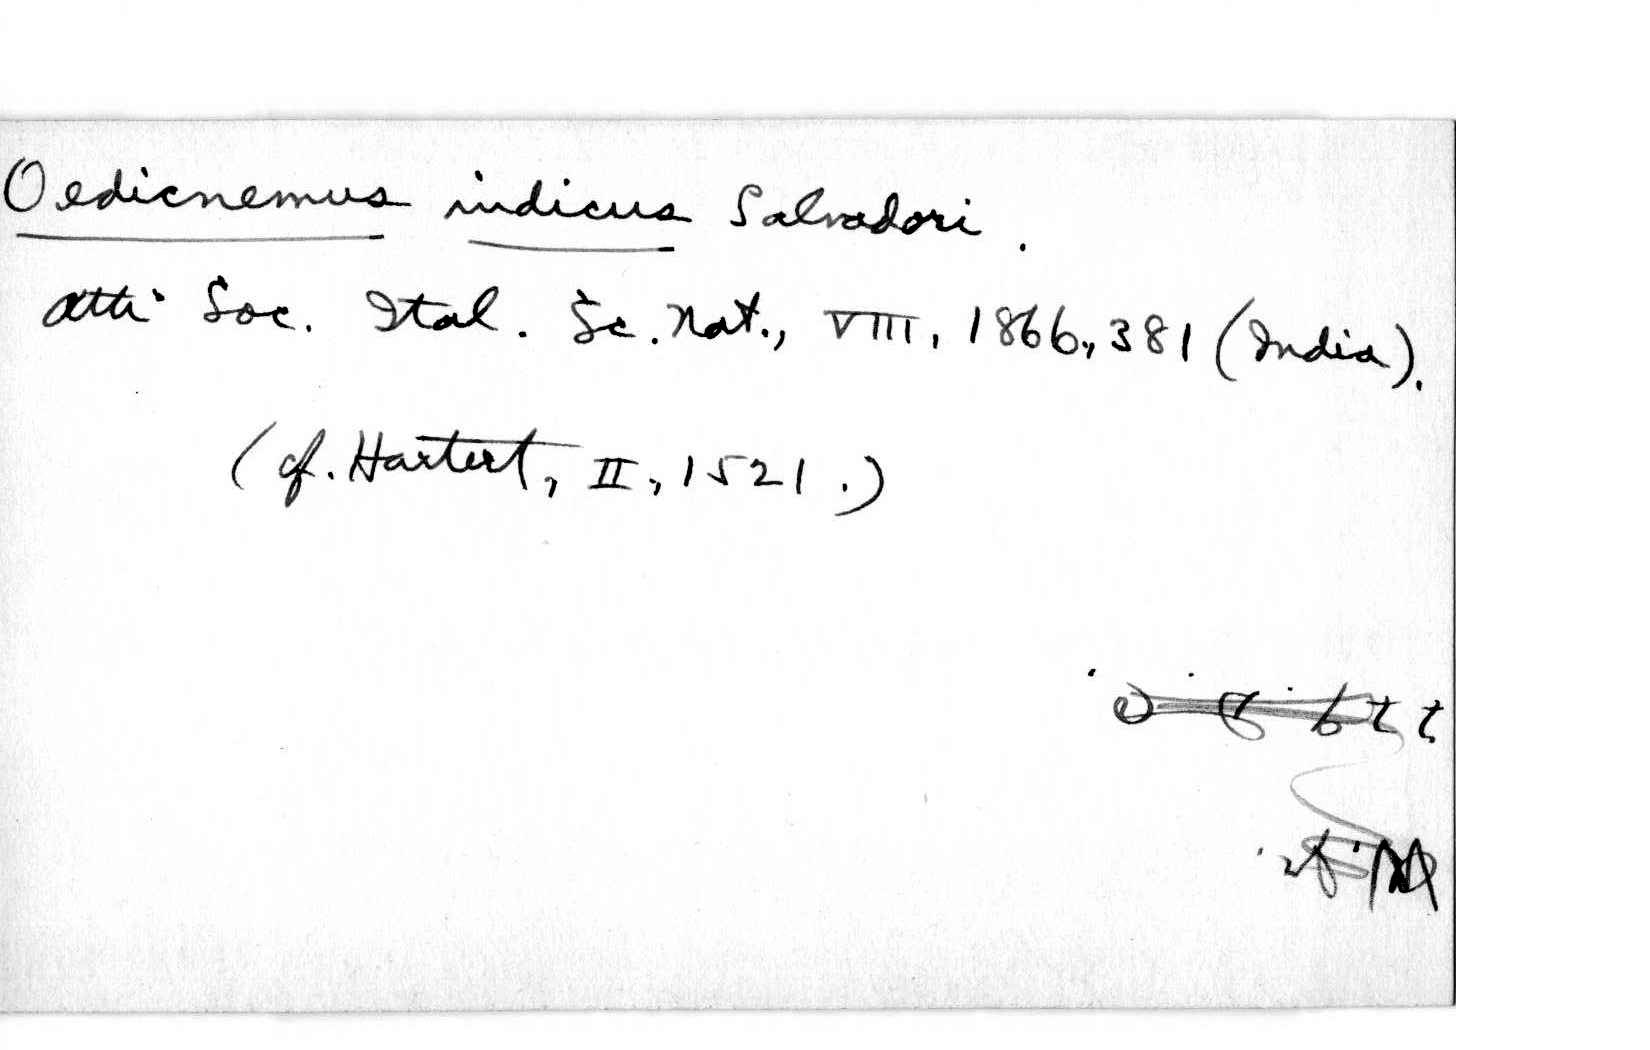 Oedicnemus indicus Salvadori.
Atti Soc. Ital. Sc. Nat., VIII, 1866, 381 (India).
(cf. Hartert, II, 1521.)